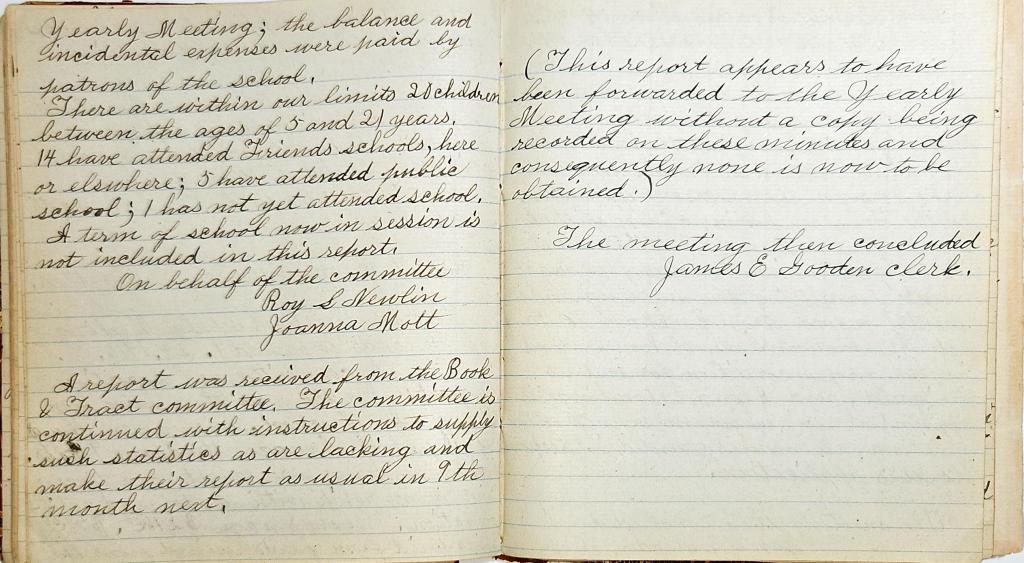 Yearly Meeting; the balance and
incidental expenses were paid by
patrons of the school.
There are within our limits 20 children
between the ages of 5 and 21 years.
14 have attended Friends schools, here
or elsewhere; 5 have attended public
school; 1 has not yet attended school.
A term of school now in session is
not included in this report.
On behalf of the committee
Roy S Newlin
Joanna Mott
A report was received from the Book
& Tract committee. The committee is
continued with instructions to supply
such statistics as are lacking and
make their report as usual in 9th
month next.
(This report appears to have
been forwarded to the Yearly
Meeting without a copy being
recorded on these minutes and
consequently none is now to be
obtained.)
The meeting then concluded
James E Gooden clerk.